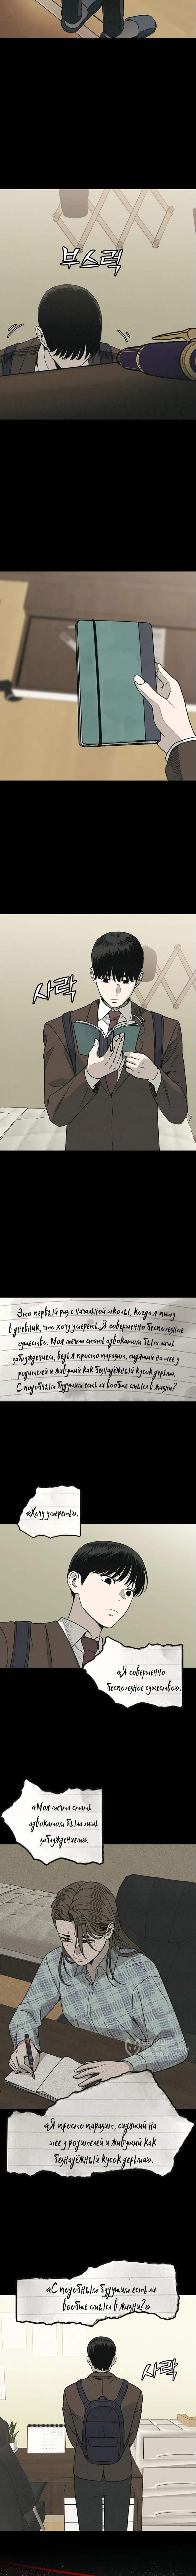 부스럭
사락
Это первый раз с начальной школы, когда я пишу
в дневник, что хочу умереть. Я совершенно бесполезное
существо. Моя мечта стать адвокатом была лишь
заблуждением, ведь я просто паразит, сидящий на шее у
родителей и живущий как безнадёжный кусок дерьма.
С подобным будущим есть ли вообще смысл в жизни?
«Хочу умереть».
«Я совершенно
бесполезное существо».
«Моя мечта стать
адвокатом была лишь
заблуждением».
«Я просто паразит, сидящий на
шее у родителей и живущий как
безнадёжный кусок дерьма».
«С подобным будущим есть ли
вообще смысл в жизни?»
사락